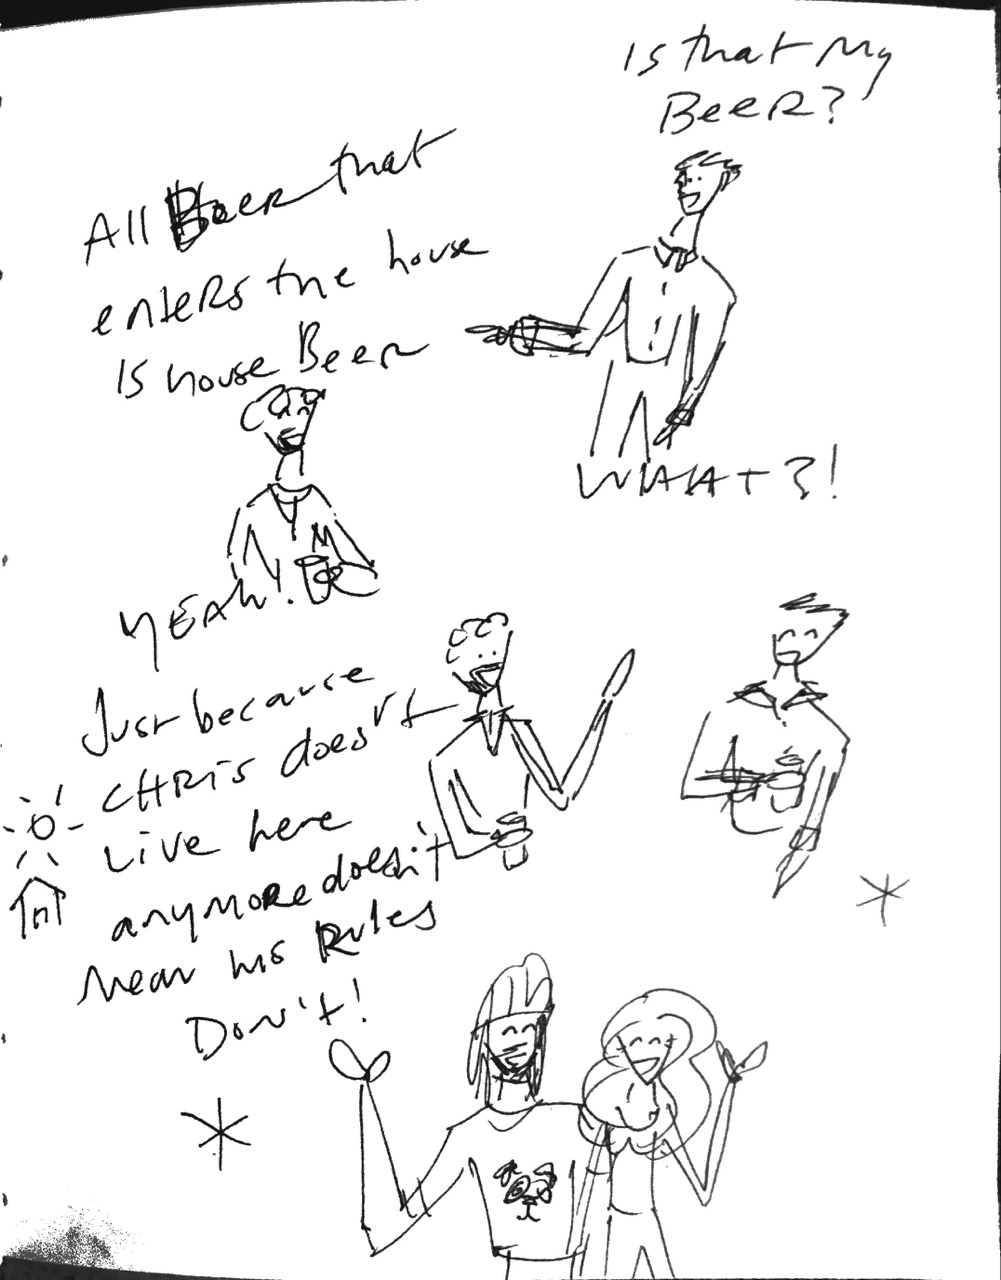 Is that My
BeeR?
All BeeR that
enteRs the house
Is house BeeR
WHAAT?!
YEAH!
Just because
CHRis doesn't
Live here
anymore doesn't
Mean his Rules
Don't!